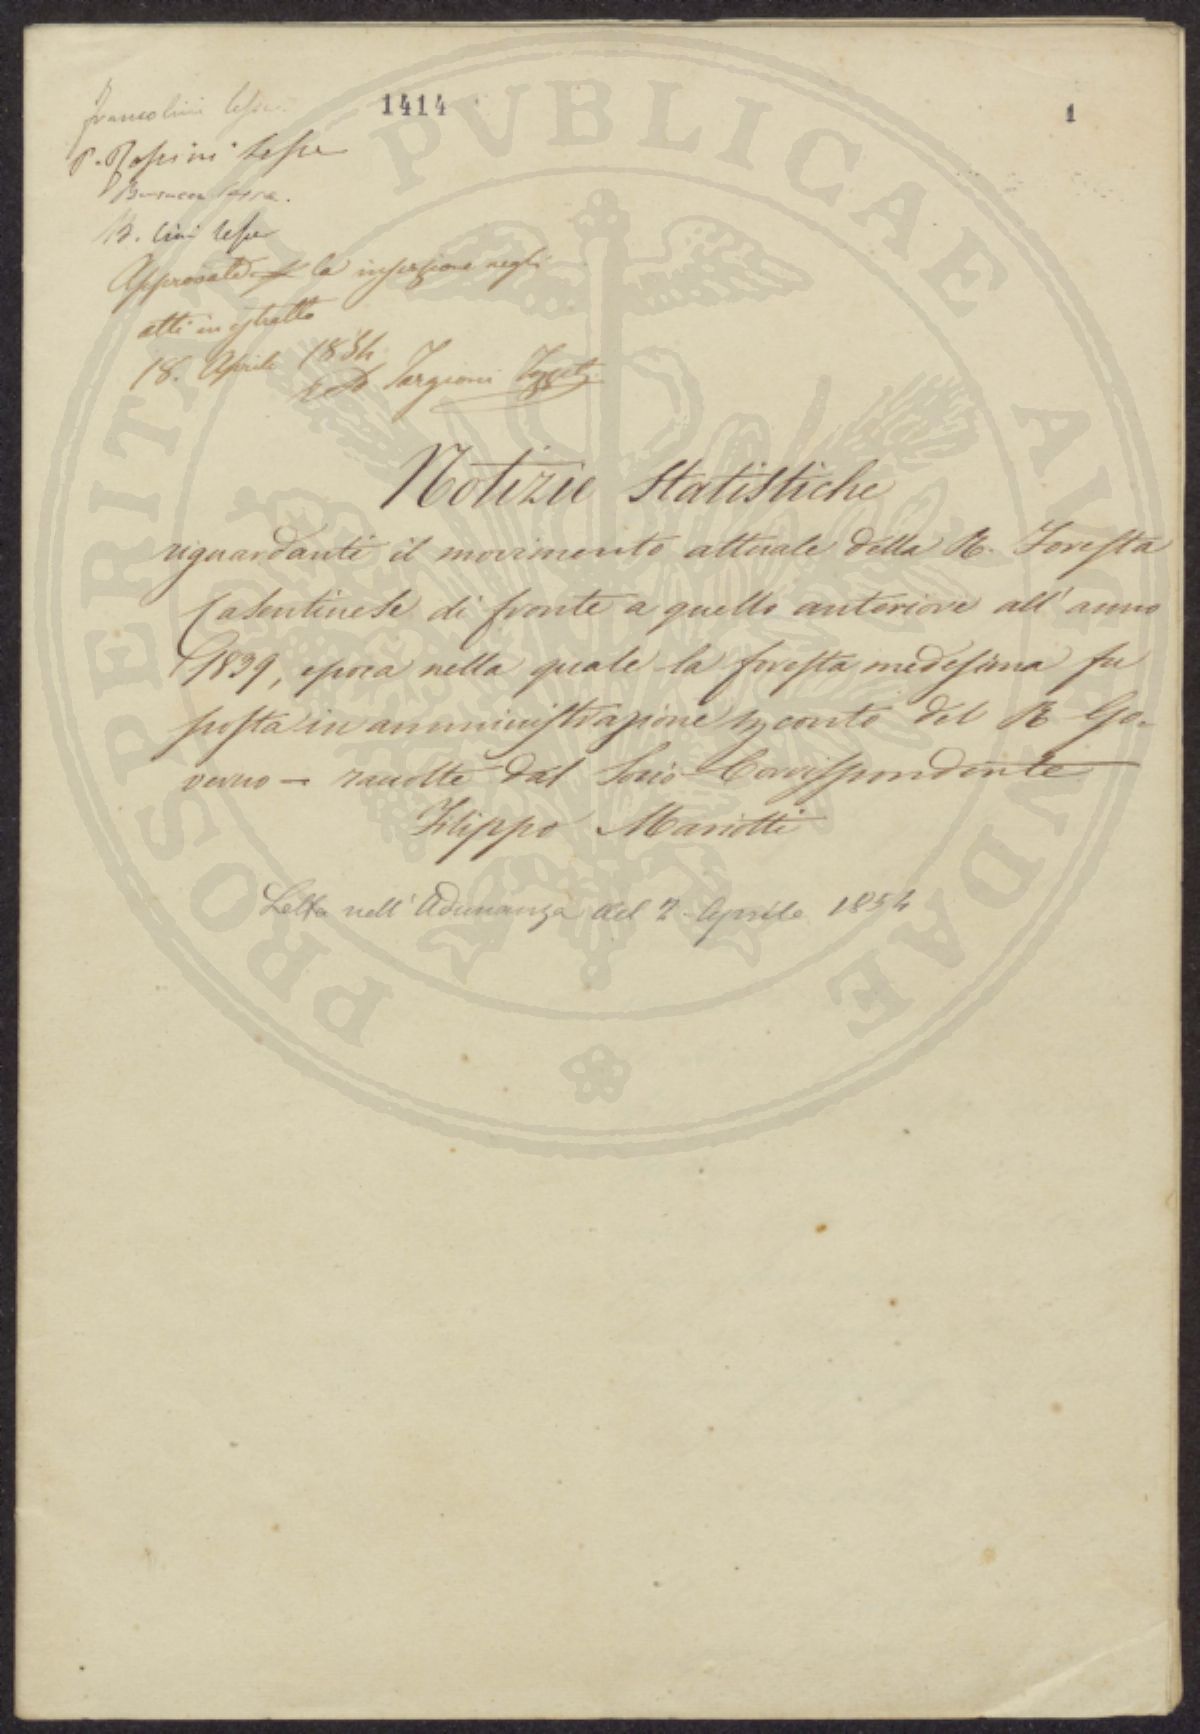 1414
1
Francolini lesse
P. Rossini lesse
B. Cini lesse
Approvate la inserzione negli
atti in estratto
18. Aprile 1854
Targioni Tozzetti
Notizie Statistiche
riguardanti il movimento attuale della R. Foresta
Casentinese di fronte a quello anteriore all' anno
1839, epoca nella quale la foresta medesima fu
posta in amministrazione p conto del R Go-
verno - racolte dal Socio Corrispondente
Filippo Mariotti
Letta nell' Adunanza del 2 Aprile 1854
PROSPERITATI PVBLICAE AVGENDAE